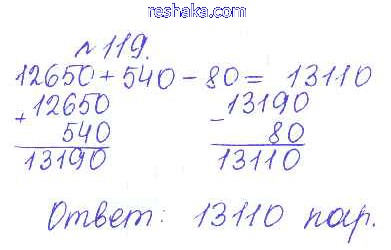 reshaka.com
№119.
12650 + 540 - 80 = 13110
+ 12650
540
13190
- 13190
80
13110
Ответ: 13110 пар.